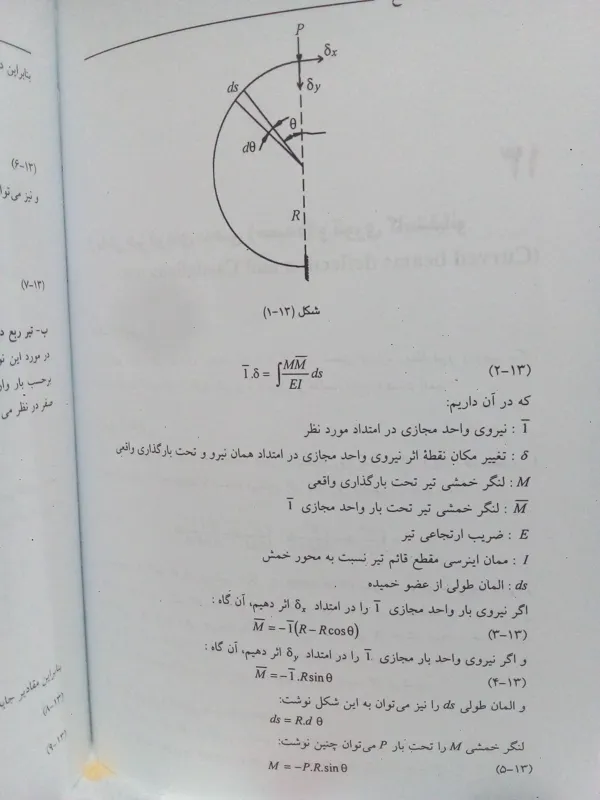 P
δx
δy
ds
θ
dθ
R
شکل (۱۳-۱)
1̅.δ = ∫ MM̅/EI ds (۱۳-۲)
که در آن داریم:
1̅ : نیروی واحد مجازی در امتداد مورد نظر
δ : تغییر مکان نقطهٔ اثر نیروی واحد مجازی در امتداد همان نیرو و تحت بارگذاری واقعی
M : لنگر خمشی تیر تحت بارگذاری واقعی
M̅ : لنگر خمشی تیر تحت بار واحد مجازی 1̅
E : ضریب ارتجاعی تیر
I : ممان اینرسی مقطع قائم تیر نسبت به محور خمش
ds : المان طولی از عضو خمیده
اگر نیروی بار واحد مجازی 1̅ را در امتداد δx اثر دهیم، آن گاه :
M̅ = -1̅(R - R cos θ) (۱۳-۳)
و اگر نیروی واحد بار مجازی 1̅ را در امتداد δy اثر دهیم، آن گاه :
M̅ = -1̅.R sin θ (۱۳-۴)
و المان طولی ds را نیز می‌توان به این شکل نوشت:
ds = R.d θ
لنگر خمشی M را تحت بار P می‌توان چنین نوشت:
M = -P.R.sin θ (۱۳-۵)
بنابراین د
(۱۳-۶)
و نیز می‌توا
(۱۳-۷)
ب- تیر ربع د
در مورد این نو
برحسب بار وار
صفر در نظر می
بنابراین مقادیر جایه
(۱۳-۸)
(۱۳-۹)